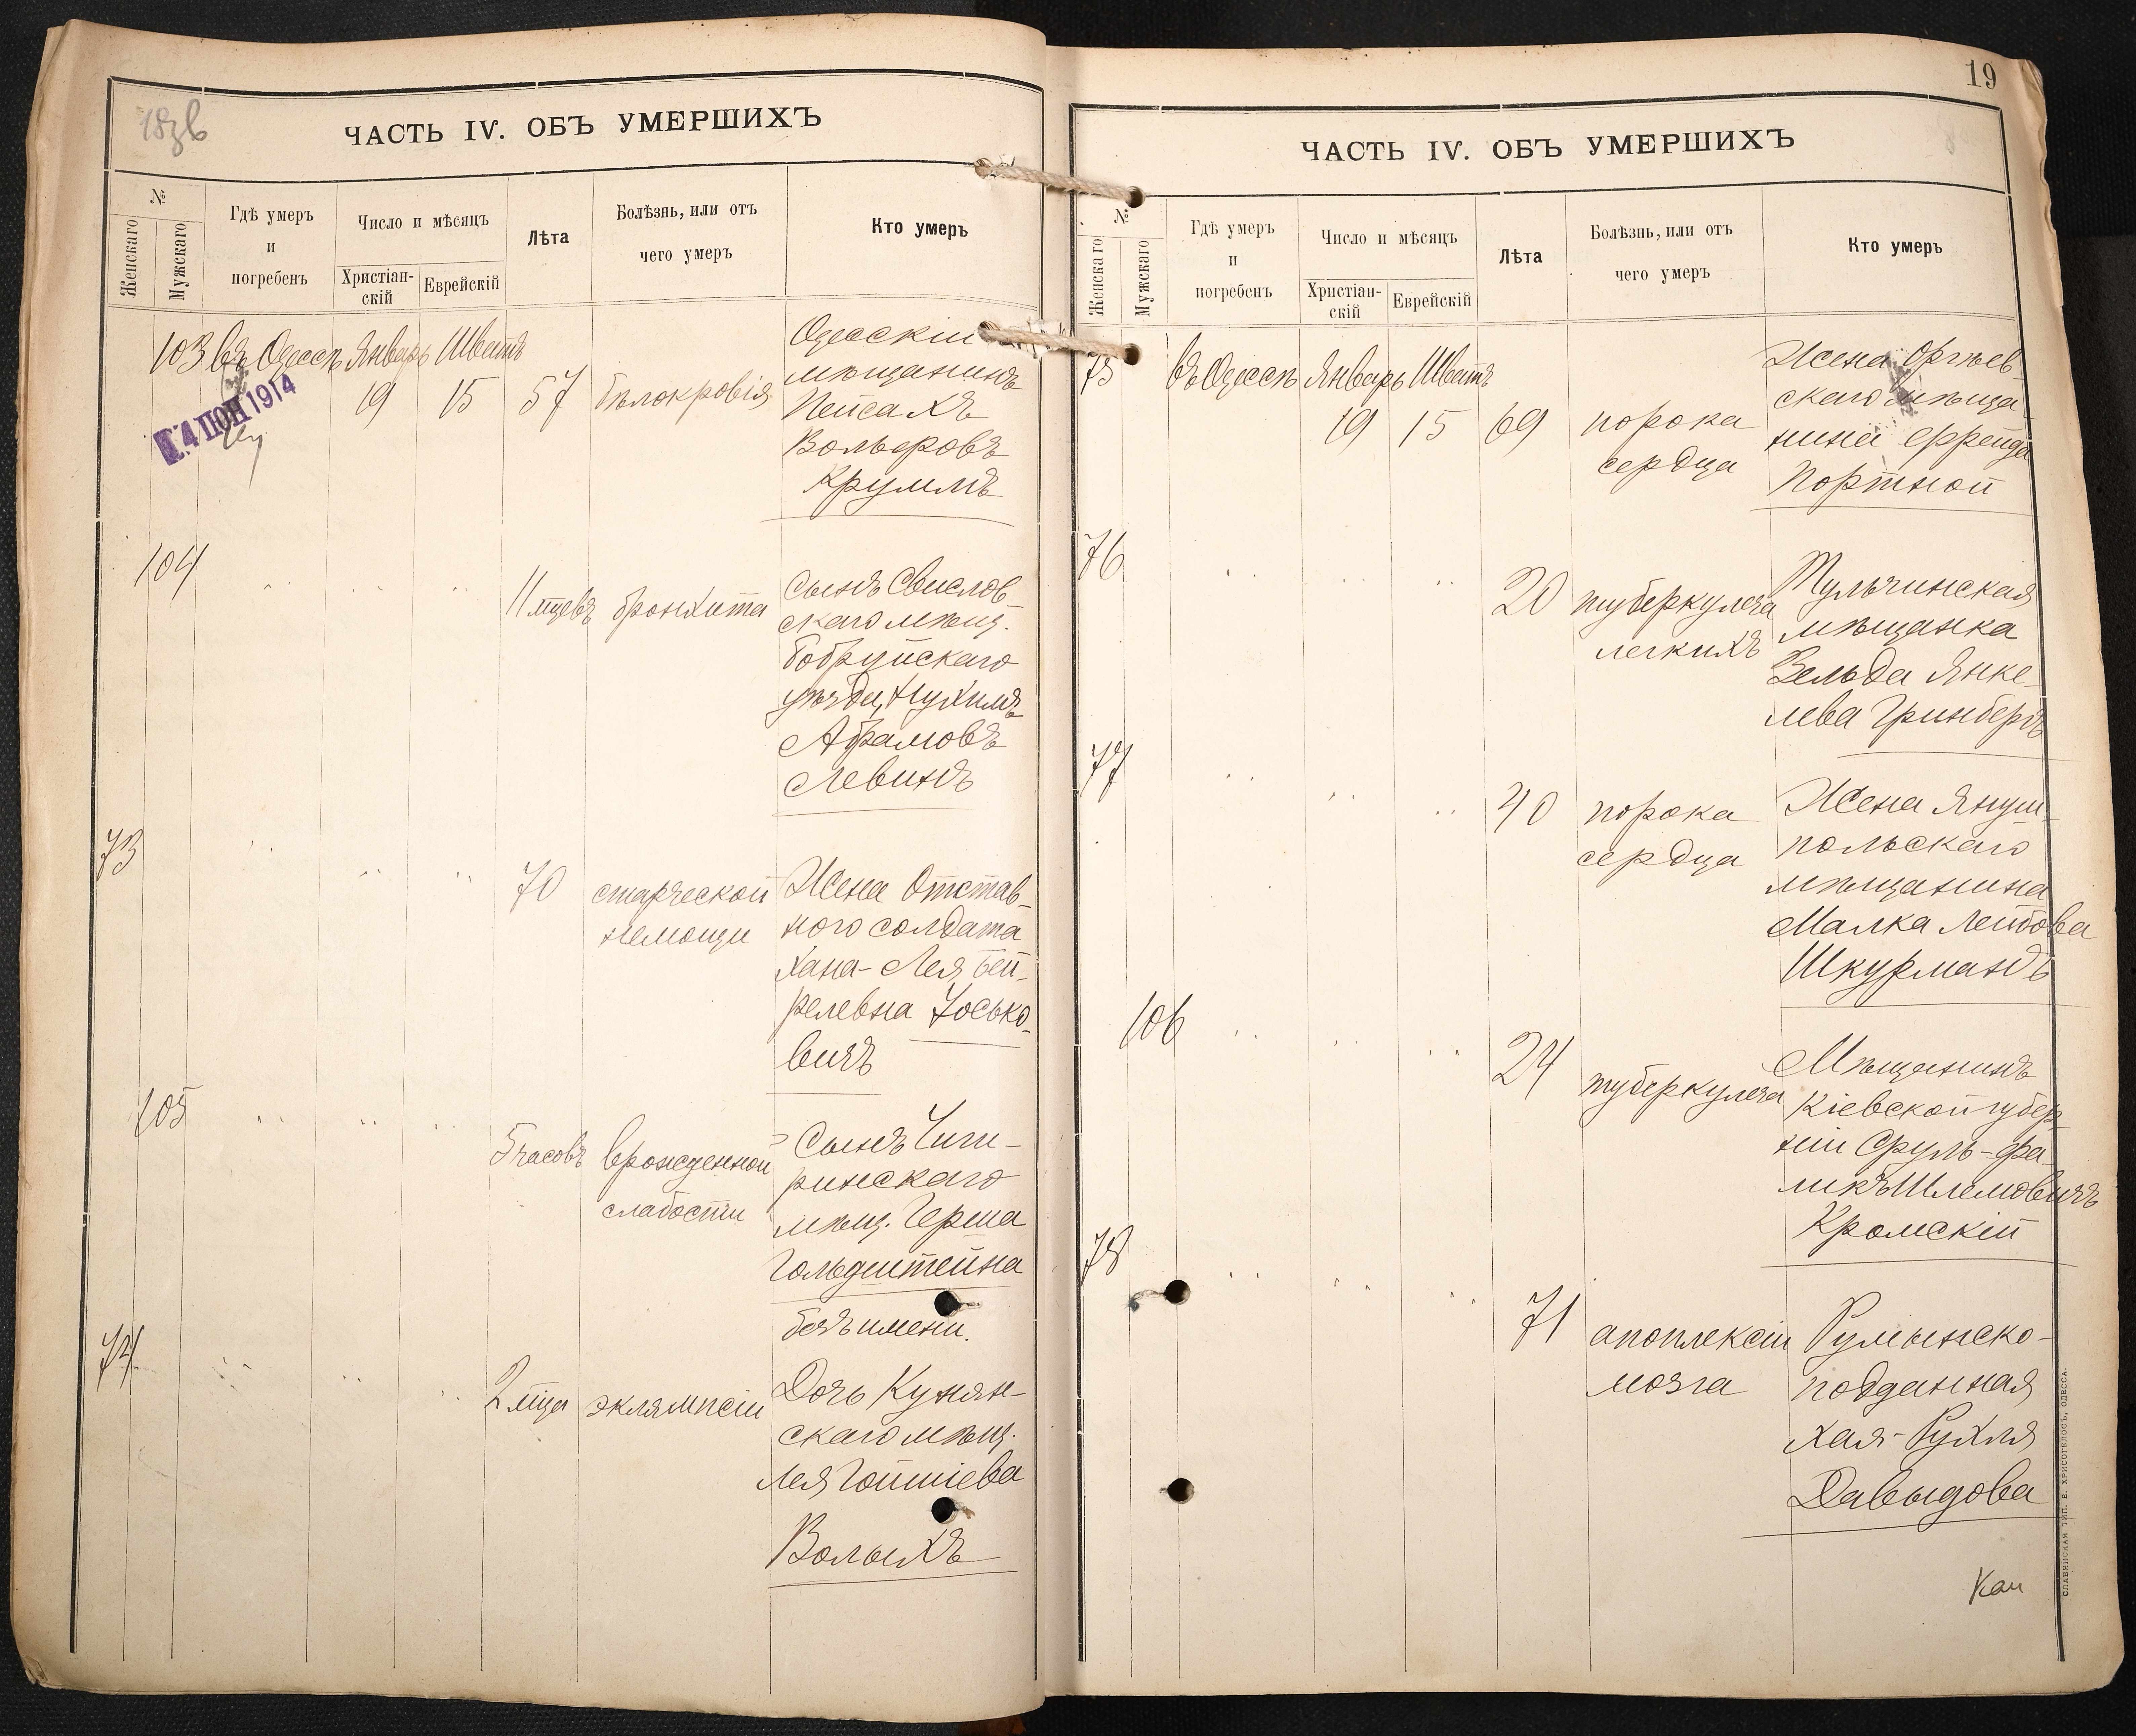 18зв
ЧАСТЬ IV. ОБЪ УМЕРШИХЪ
№
Женскаго
Мужскаго
Гдѣ умеръ
и
погребенъ
Число и мѣсяцъ
Христіан-
скій
Еврейскій
Лѣта
Болѣзнь, или отъ
чего умеръ
Кто умеръ
103 въ Одессѣ Январь Шватъ
19 15 57 бѣлокровія
Одесскій
мѣщанинъ
Пейсахъ
Вольфовъ
Круммъ
4 ІЮН 1914
104
11 мцевъ бронхита
Сынъ Свислов-
скаго мѣщ.
Бобруйскаго
уѣзда, Нухимъ
Абрамовъ
Левинъ
73
70 старческой
немощи
Жена Отстав-
ного солдата
Хана-Лея Бей-
релевна Іосько-
вичъ
105
5 часовъ врожденной
слабости
Сынъ Чиги-
ринскаго
мѣщ. Герша
Гольдштейна
безъ имени.
74
2 мца эклямпсіи
Дочь Кунян-
скаго мѣщ.
Лея Гойшіева
Волыхъ
19
ЧАСТЬ IV. ОБЪ УМЕРШИХЪ
№
Женскаго
Мужскаго
Гдѣ умеръ
и
погребенъ
Число и мѣсяцъ
Христіан-
скій
Еврейскій
Лѣта
Болѣзнь, или отъ
чего умеръ
Кто умеръ
75 въ Одессѣ Январь Шватъ
19 15 69 порока
сердца
Жена Оргѣев-
скаго мѣща-
нина Фрейда
Портной
76
20 туберкулеза
легкихъ
Тульчинская
мѣщанка
Зельда Янке-
лева Гринбергъ
77
40 порока
сердца
Жена Януш-
польскаго
мѣщанина
Малка Лейбова
Шкурманъ
106
24 туберкулеза
Мѣщанинъ
Кіевской губер-
ніи Сруль-Фа-
ликъ Шлемовичъ
Кромскій
78
71 апоплексіи
мозга
Румынско-
подданная
Хая-Рухля
Давыдова
Кан
СЛАВЯНСКАЯ ТИП. Е. ХРИСОГЕЛОСЪ, ОДЕССА.